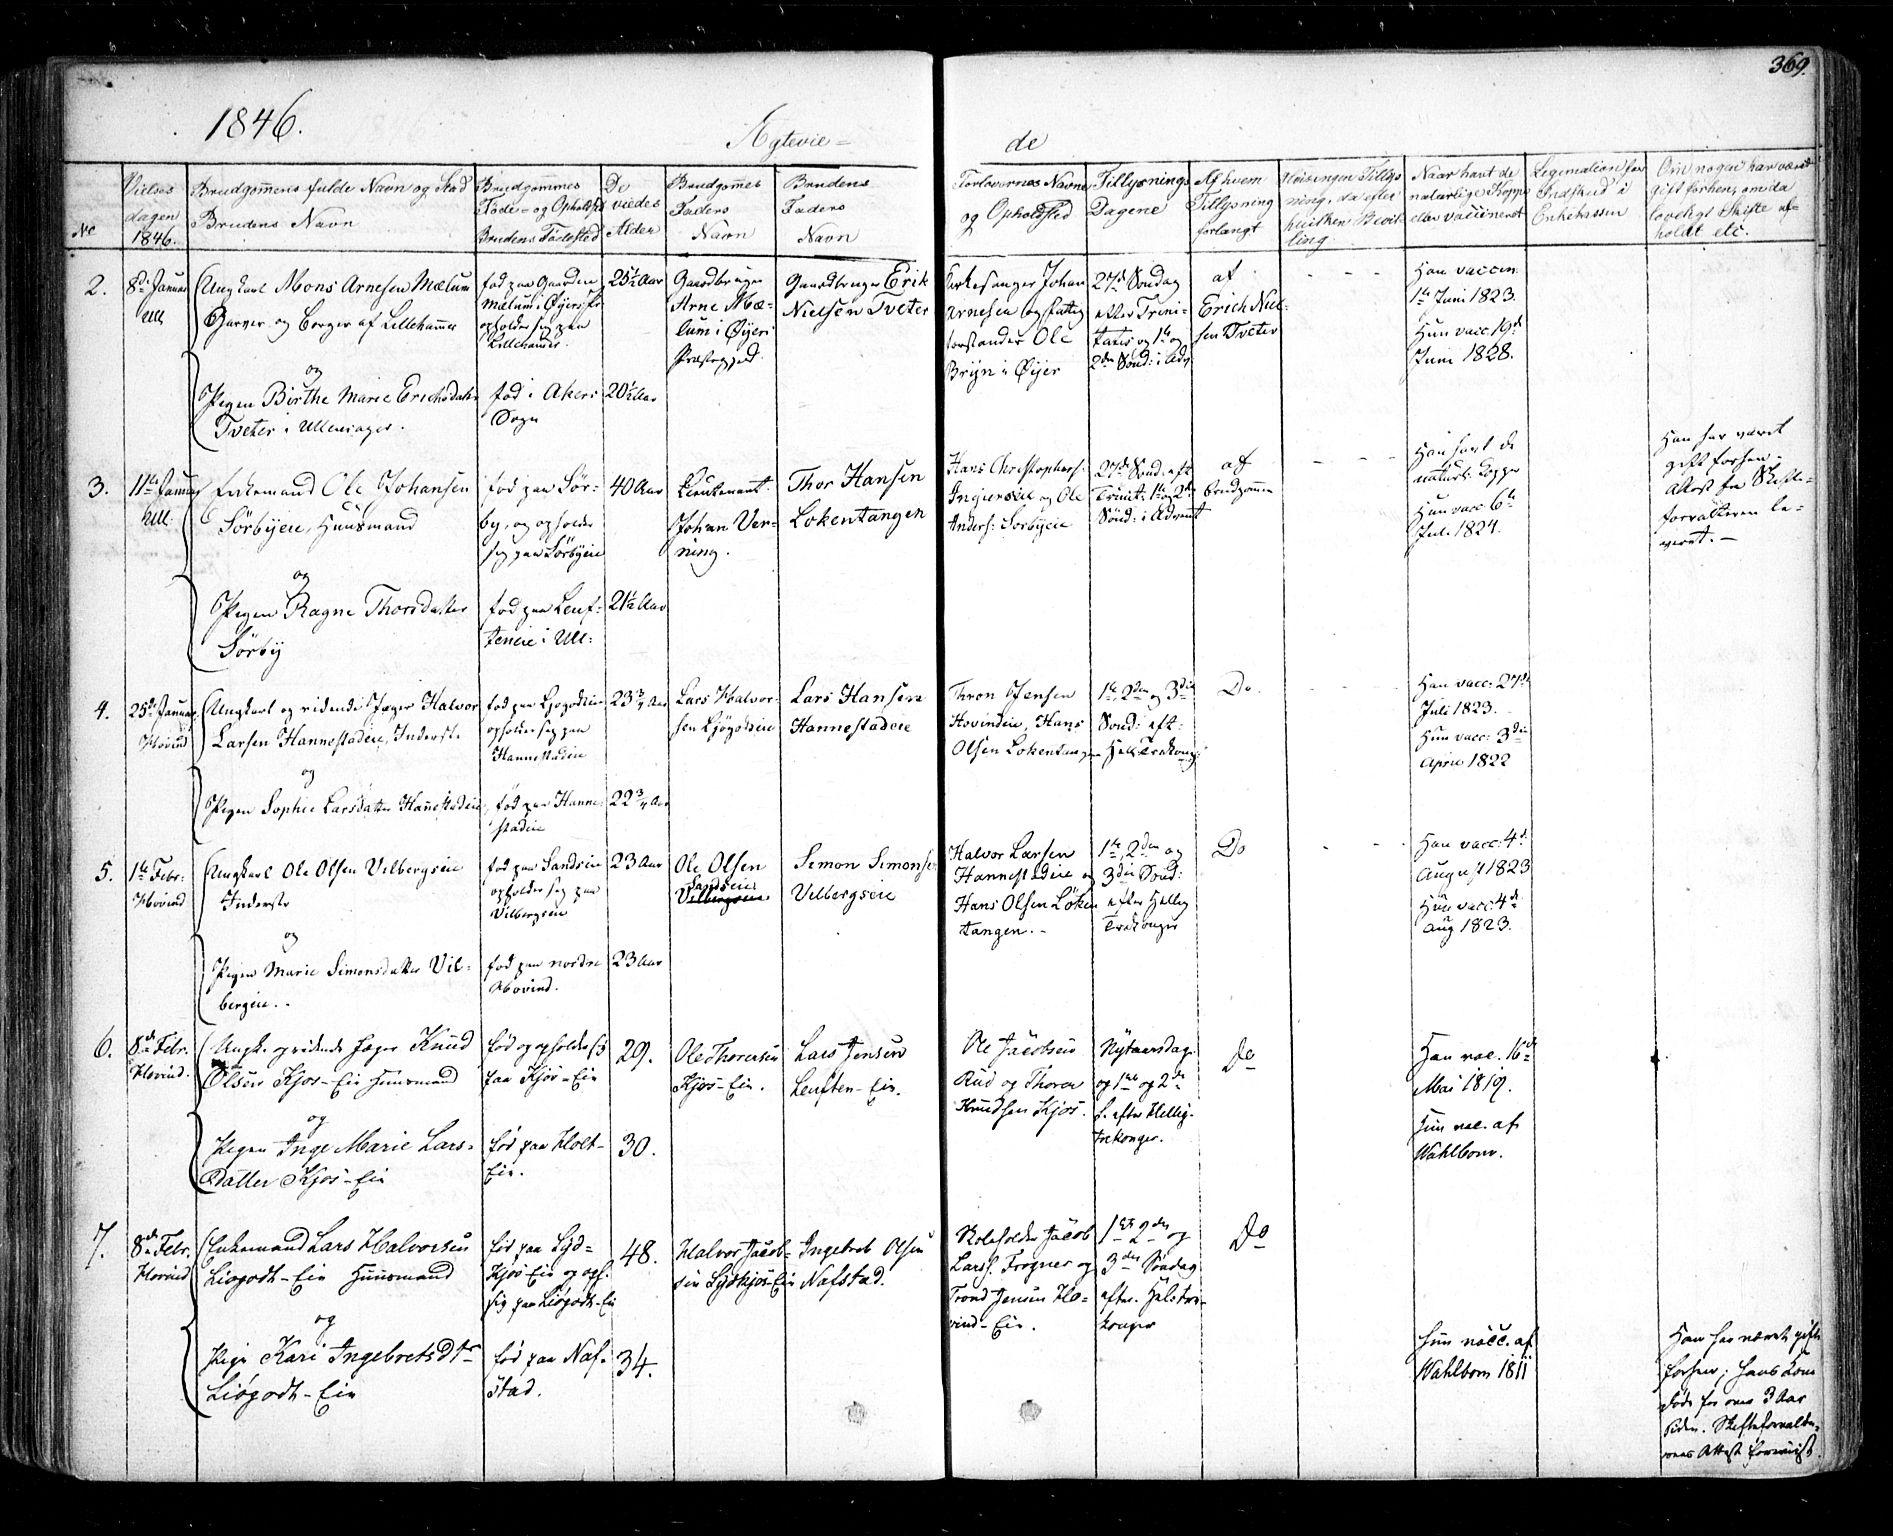 369.
1846.
Ægtevie=
de
No
Vielses
dagen
1846.
Brudgommens fulde Navn og Stand
Brudens Navn
Brudgommes
Føde- og Opholdsted
Brudens Fødested
De
viedes
Alder
Brudgomes
Faders
Navn
Brudens
Faders
Navn
Forlovernes Navne
og Opholdsted
Tillysnings
Dagene
Af hvem
Tillysning
forlangt
Tillys
ning, da efter
hvilken Bevil-
ling
Naar havt de
naturlige Kopper
eller vaccineret
Legimation for
Indskud i
Enkekassen
Om nogen har været
gift forhen, om da
lovligt Skifte af=
holdt etc.
2.
8de Januar
Ull.
Ungkarl Mons Arnesen Mælum
Garver og Borger af Lillehammer
og
Pigen Birthe Marie Erichsdatter
Tveter i Ullensager.
fød paa Gaarden
Mælum i Øyer
opholder sig paa
Lillehammer.
fød i Akers
Sogn
25½ Aar
20½ Aar
Gaardbruger
Arne Mæ-
lum i Øyer
Præstegjeld.
Gaardbruger Erik
Nielsen Tveter
Kirkesanger Johan
Arnesen og Fattig
forstander Ole
Bryn i Øyer
27de Søndag
efter Trini-
tatis og 1ste og
2den Sønd: i Adv.
af
Erich Niel-
sen Tveter
Han vaccin
1ste Juni 1823.
Hun vacc. 19de
Juni 1828.
3.
11te Januar
Ull.
Enkemand Ole Johansen
Sørbyeie, Huusmand
og
Pigen Ragne Thorsdatter
Sørby
fød paa Sør-
by, og opholder
sig paa Sørbyeie
fød paa Leuf-
steneie i Ull:
40 Aar
21½ Aar
Lieutenant
Johan Wer-
ning.
Thor Hansen
Lokentangen
Hans Christophers.
og Ole
Anders: Sørbyeie
27de Sønd. eft
Trinit: 1ste og 2de
Sønd: i Advent
af
Brudgommen
Han havt de
naturl. Kopper
Hun vacc 6te
Juli 1824.
Han har været
gift forhen.
Attest fra Skifte-
forvalteren le-
veret.
4.
25de Januar
Hovind
Ungkarl og ridende Jæger Halvor
Larsen Hannestadeie, Inderste
og
Pigen Sophie Larsdatter Hannestadeie
fød paa
opholder sig paa
Hannestadeie
fød paa Hanne-
stadeie
23¾ Aar
22¾ Aar
Lars Halvor-
sen
Lars Hansen
Hannestadeie
Thron Jensen
Hovindeie, Hans
Olsen Lokentangen
1ste, 2den og 3die
Sønd: eft:
Hell: Trekong:
Do
Han vacc: 27de
Juli 1823.
Hun vacc: 3die
April 1822
5.
1ste Febr:
Hovind
Ungkarl Ole Olsen Vilbergseie
Inderste
og
Pigen Marie Simonsdatter Vil-
bergeie.
fød paa Sandseie
opholder sig paa
Vilbergseie
fød paa nordre
Hovind.
23 Aar
23 Aar
Ole Olsen
Sandseie
Vilbergseie
Simon Simonsen
Vilbergseie
Halvor Larsen
Hannestadeie og
Hans Olsen Løken
tangen.
1ste, 2den og
3die Sønd:
efter Hellig
Trekonger
Do
Han vacc: 4de
August 1823
Hun vacc: 4de
Aug 1823.
6.
8de Febr.
Hovind.
Ungk. og ridende Jæger Knud
Olsen Kjos-Eie Huusmand
og
Pigen Inge Marie Lars-
Datter Kjos-Eie
fød og opholder sig
paa Kjos-Eie
fød paa Holt-
Eie.
29.
30.
Ole Thoresen
Kjos-Eie.
Lars Jensen
Leusten-Eie.
Ole Jacobsen
Rud og Thoren
Knudsen Kjos.
Nytaarsdag
og 1ste og 2de
S. efter Hellig-
trekonger.
Do
Han vac. 16de
Mai 1819.
Hun vac. af
Wahlbom.
7.
8de Febr.
Hovind
Enkemand Lars Halvorsen
Liøgodt-Eie Huusmand
og
Pige Kari Ingebretsdtr
Liøgodt-Eie
fød paa Syd-
Kjos-Eie og oph.
sig paa Liøgodt-Eie
fød paa Naf-
stad.
48.
34.
Halvor Jacob-
sen Sydkjos-Eie
Ingebret Olsen
Nafstad.
Jacob
Lars. Frogner og
Trond Jensen Ho-
vind-Eie.
1ste 2den og
3die Søndag
efter. Hel. tre-
konger
Do
Hun vacc. af
Wahlbom 1811
Han har været gift
forhen; hans Kone
døde for over 3 Aar
siden. Skifteforvalte-
rens Attest foreviist.